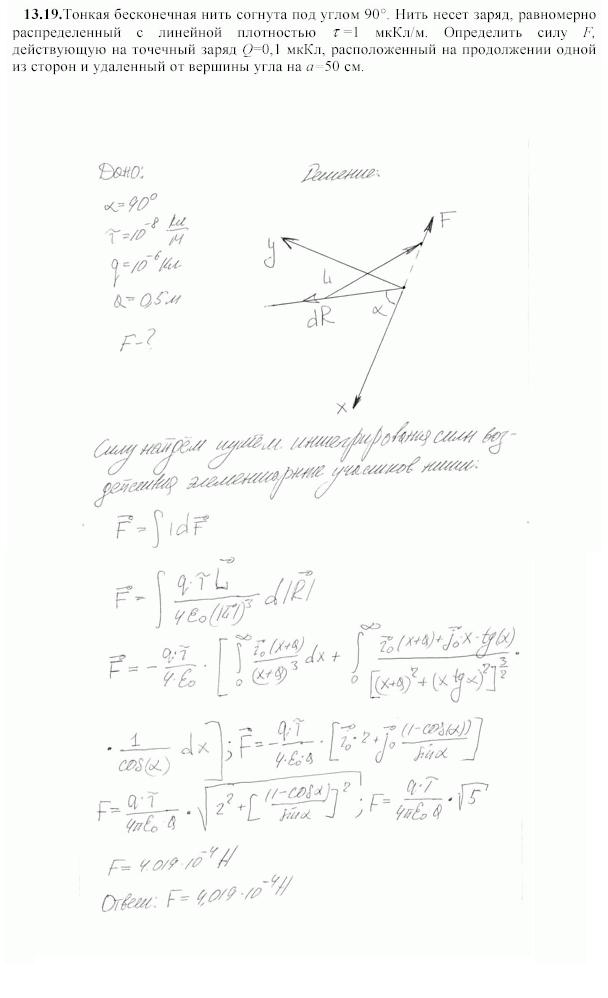 13.19.Тонкая бесконечная нить согнута под углом 90°. Нить несет заряд, равномерно
распределенный с линейной плотностью τ=1 мкКл/м. Определить силу F,
действующую на точечный заряд Q=0,1 мкКл, расположенный на продолжении одной
из сторон и удаленный от вершины угла на a=50 см.
Дано: Решение:
α=90°
τ=10⁻⁸ Кл/м
q=10⁻⁶ Кл
a=0,5м
F-?
F
y
L
dR
α
x
Силу найдём путём интегрирования силы воз-
действия элементарных участков нити:
F⃗=∫|dF⃗
F⃗=∫ q·τ L⃗ / 4ε₀(|L⃗|)³ d|R⃗|
F⃗=-q·τ/4·ε₀ · [∫₀^∞ i⃗₀(x+a)/(x+a)³ dx + ∫₀^∞ i⃗₀(x+a)+j⃗₀x·tg(α) / [(x+a)²+(x tgα)²]^(3/2) ·
· 1/cos(α) dx]; F⃗=-q·τ/4·ε₀·a · [i⃗₀·2+j⃗₀ (1-cos(α))/sinα]
F=q·τ/4πε₀·a · √(2²+[(1-cosα)/sinα]²); F=q·τ/4πε₀·a · √5
F=4.019·10⁻⁴ Н
Ответ: F=4,019·10⁻⁴ Н